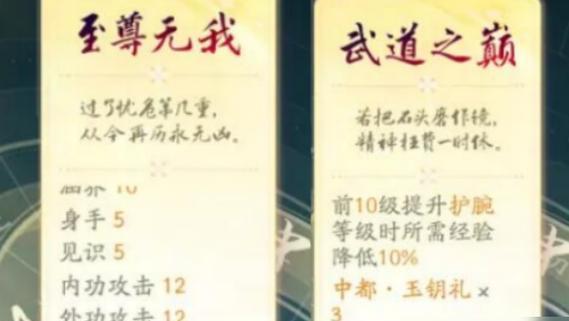 至尊无我
过了忧危第几重，
从今再历永无凶。
涵养 10
身手 5
见识 5
内功攻击 12
外功攻击 12
武道之巅
若把石头磨作镜，
精神枉费一时休。
前10级提升护腕
等级时所需经验
降低10%
中都·玉钥礼 ×
3